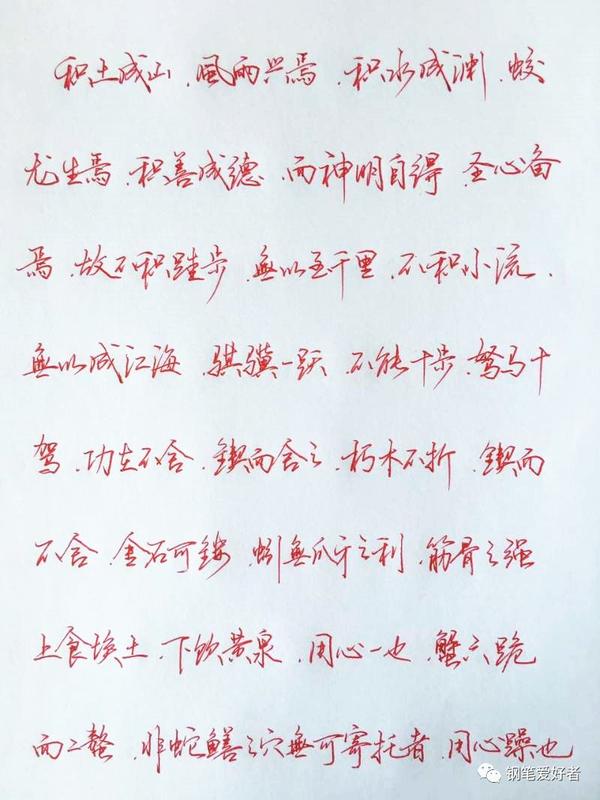 积土成山、風雨兴焉、积水成渊、蛟
龙生焉、积善成德、而神明自得、圣心备
焉、故不积跬步、無以至千里、不积小流、
無以成江海、骐骥一跃、不能十步、驽马十
驾、功在不舍、锲而舍之、朽木不折、锲而
不舍、金石可镂、蚓無爪牙之利、筋骨之强
上食埃土、下饮黄泉、用心一也、蟹六跪
而二螯、非蛇鳝之穴無可寄托者、用心躁也
钢笔爱好者